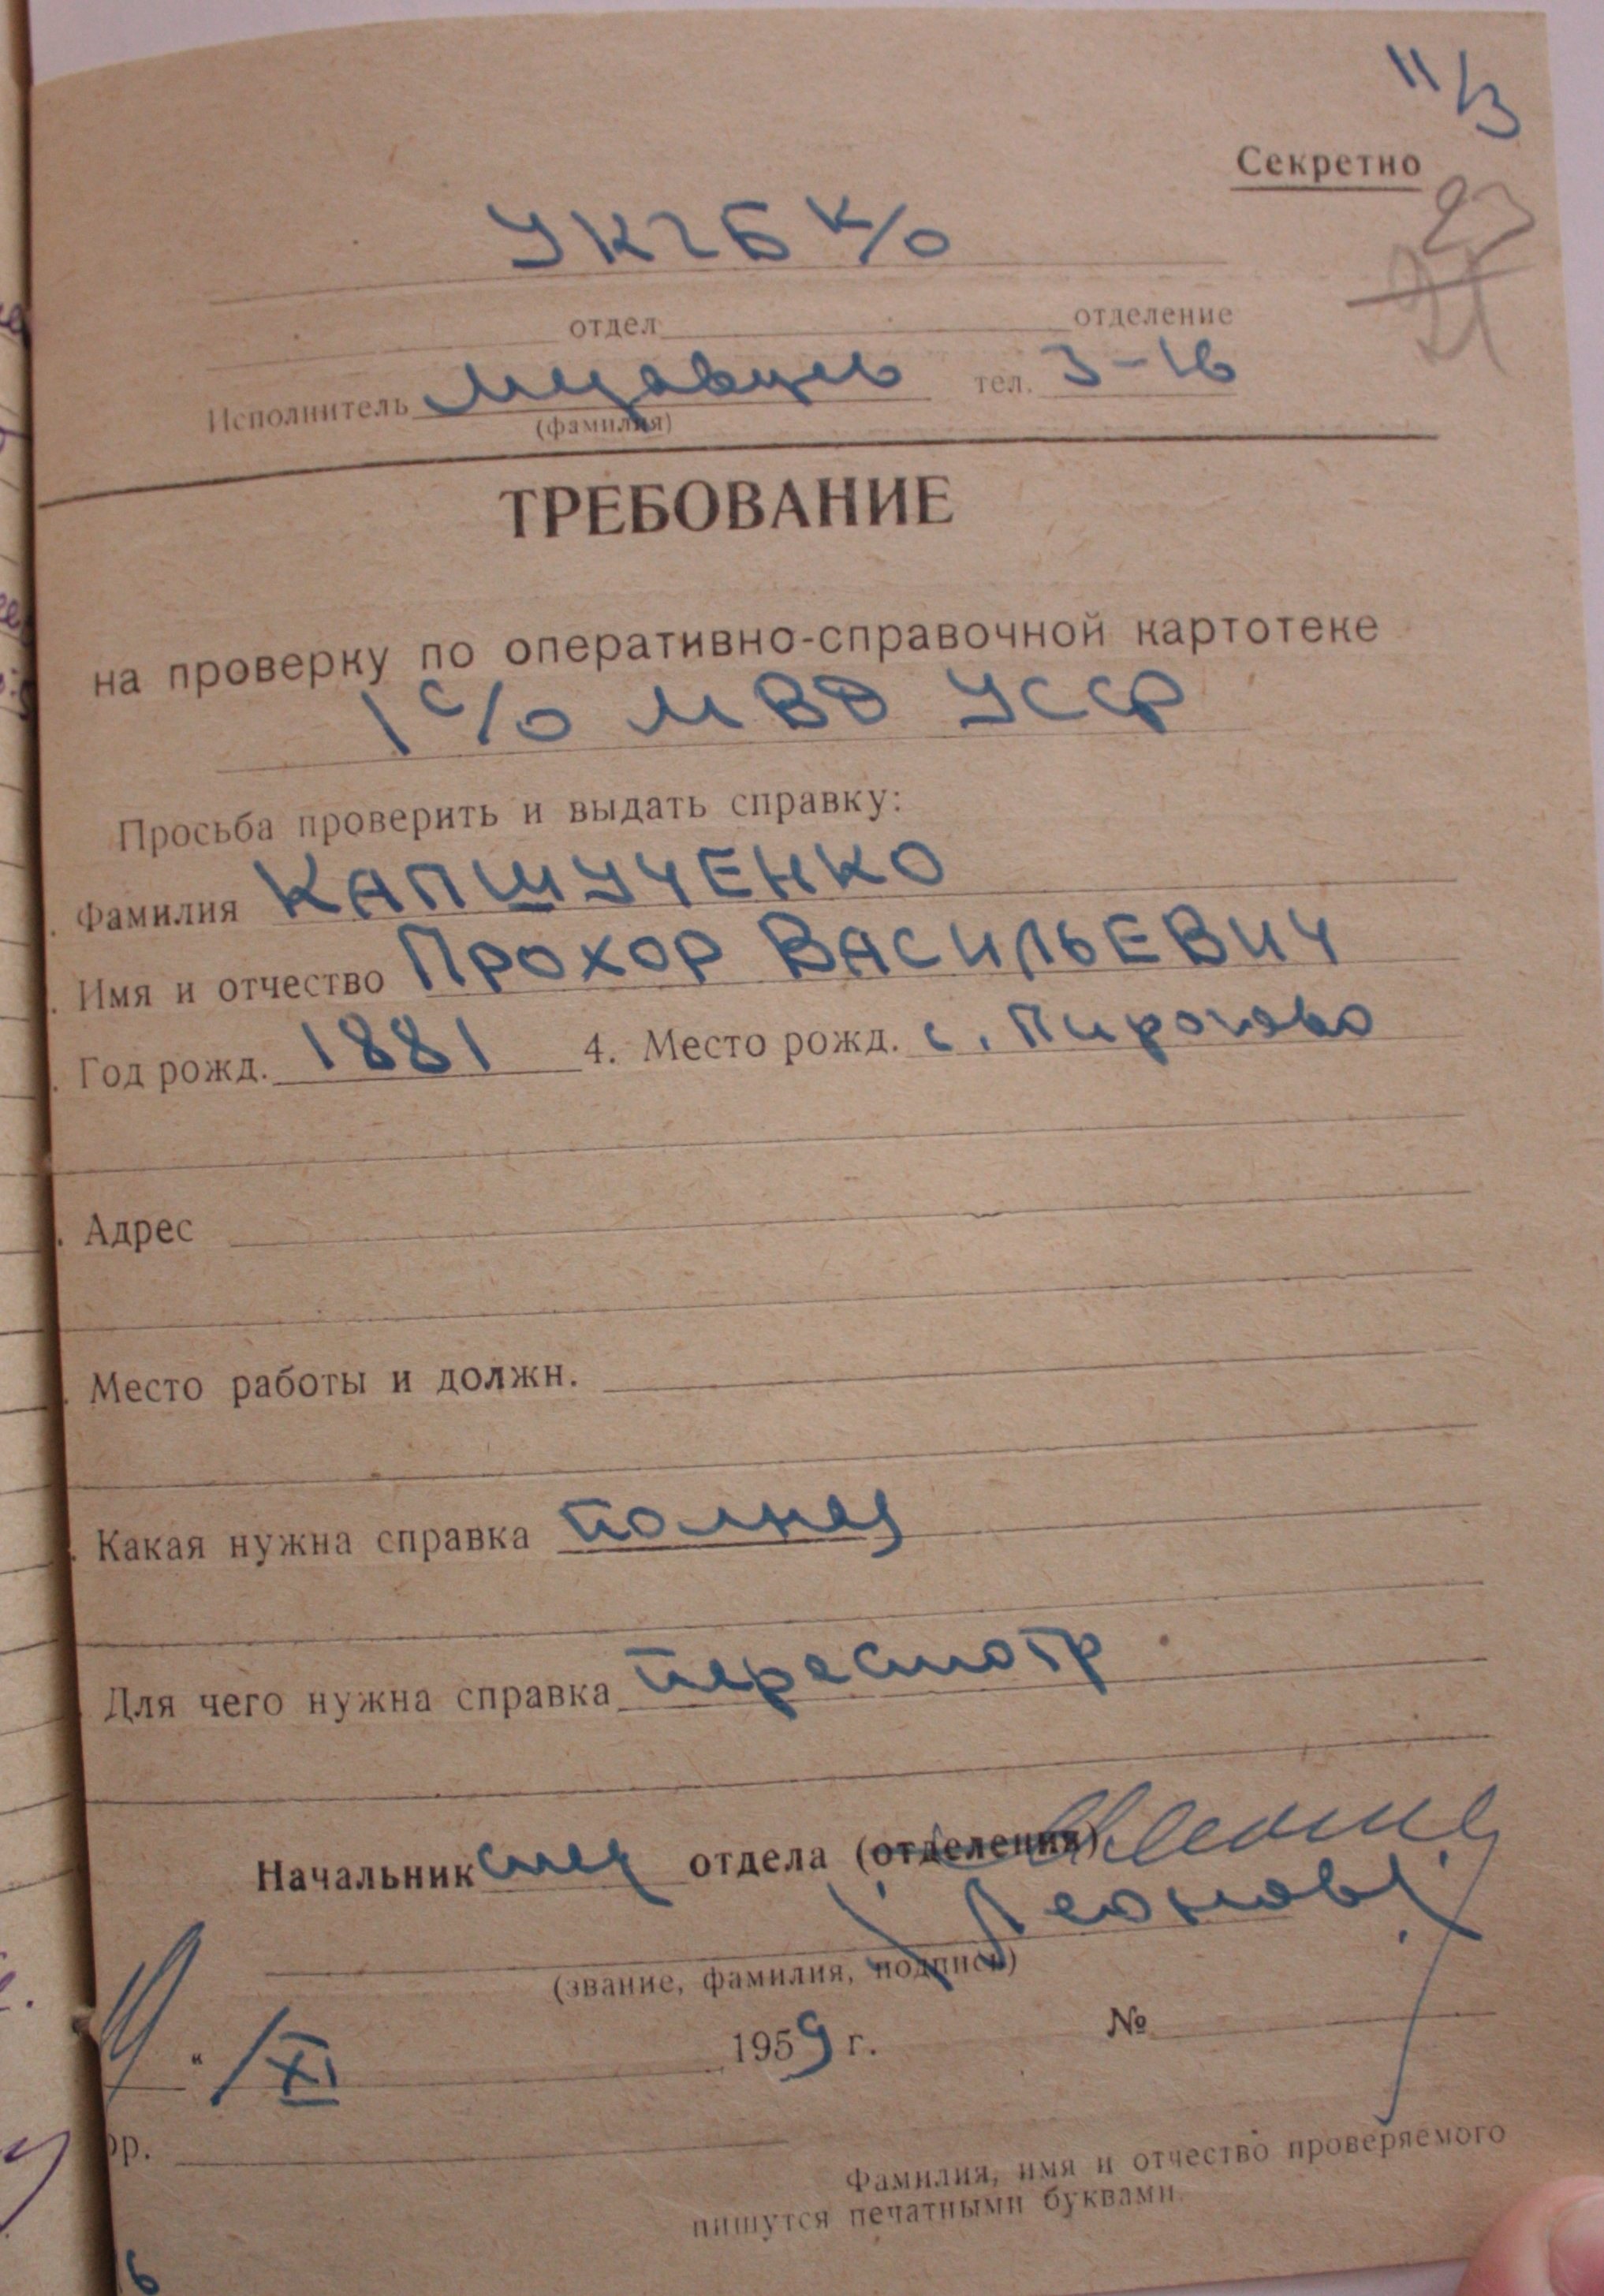 11/3
Секретно
23
21
УКГБ К/О
отдел отделение
Исполнитель тел. 3-16
(фамилия)
ТРЕБОВАНИЕ
на проверку по оперативно-справочной картотеке
1 с/о МВД УССР
Просьба проверить и выдать справку:
. Фамилия КАПШУЧЕНКО
. Имя и отчество ПРОХОР ВАСИЛЬЕВИЧ
. Год рожд. 1881 4. Место рожд. с. Пирогово
. Адрес
. Место работы и должн.
. Какая нужна справка полная
Для чего нужна справка пересмотр
Начальник след отдела (отделения)
(Леонов)
(звание, фамилия, подпись)
" /XI 1959 г. №
ор.
Фамилия, имя и отчество проверяемого
пишутся печатными буквами.